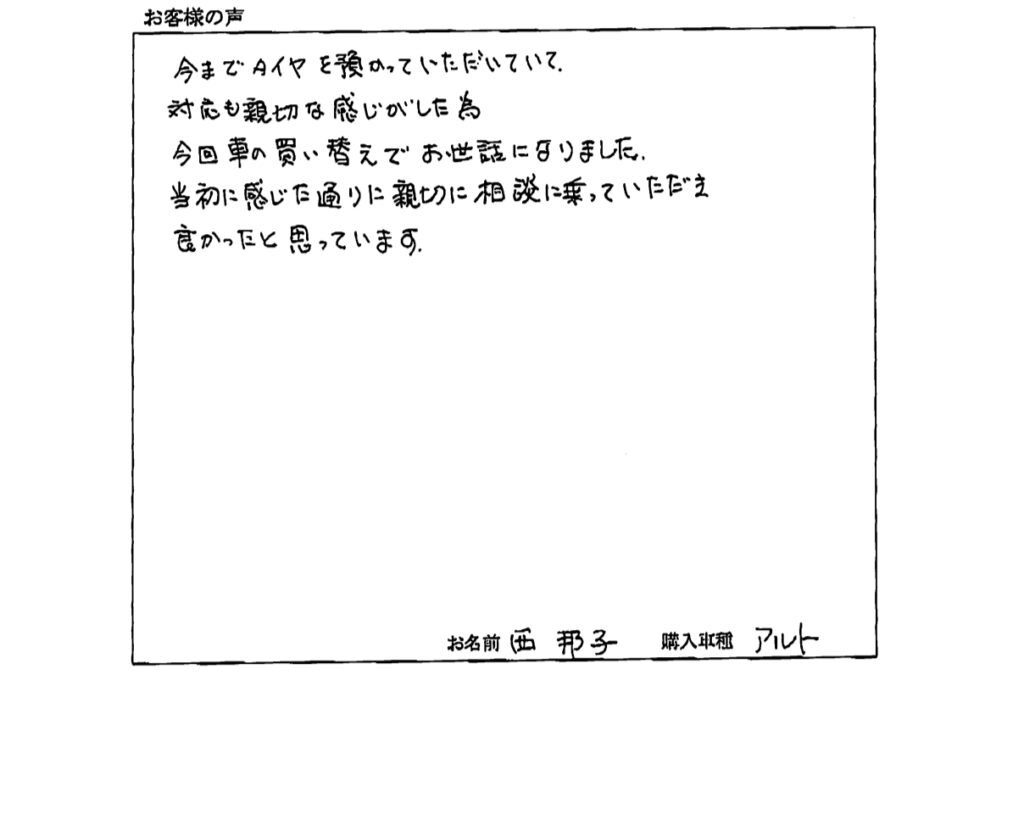 お客様の声
今までタイヤを預かっていただいていて、
対応も親切な感じがした為
今回車の買い替えでお世話になりました。
当初に感じた通りに親切に相談に乗っていただき
良かったと思っています。
お名前 西 邦子 購入車種 アルト